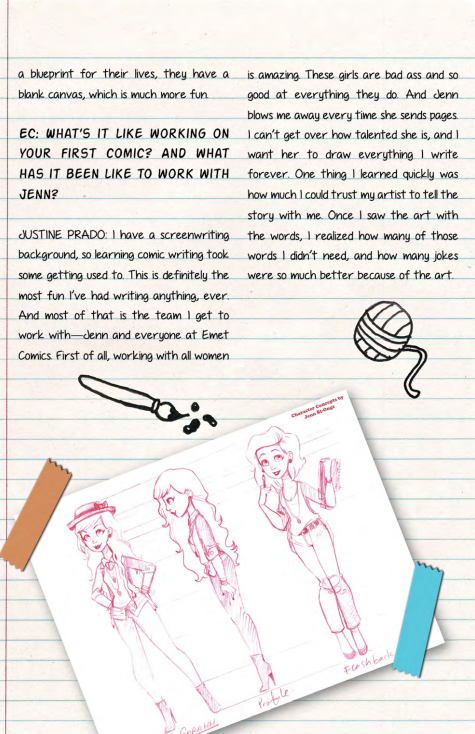 a blueprint for their lives, they have a
blank canvas, which is much more fun.
EC: WHAT'S IT LIKE WORKING ON
YOUR FIRST COMIC? AND WHAT
HAS IT BEEN LIKE TO WORK WITH
JENN?
JUSTINE PRADO: I have a screenwriting
background, so learning comic writing took
some getting used to. This is definitely the
most fun I've had writing anything, ever.
And most of that is the team I get to
work with—Jenn and everyone at Emet
Comics. First of all, working with all women
is amazing. These girls are bad ass and so
good at everything they do. And Jenn
blows me away every time she sends pages.
I can't get over how talented she is, and I
want her to draw everything I write
forever. One thing I learned quickly was
how much I could trust my artist to tell the
story with me. Once I saw the art with
the words, I realized how many of those
words I didn't need, and how many jokes
were so much better because of the art.
Character Concepts by
Jenn St-Onge
Profile
Flashback